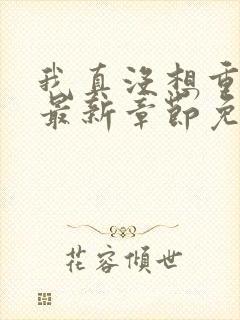 我真没想重
最新章节免
花容倾世